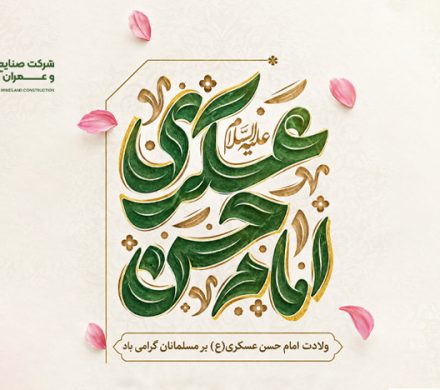 شرکت صنایع
و عمران
MINES AND CONSTRUCTION
امام حسن
عسکری
علیه السلام
ولادت امام حسن عسکری(ع) بر مسلمانان گرامی باد